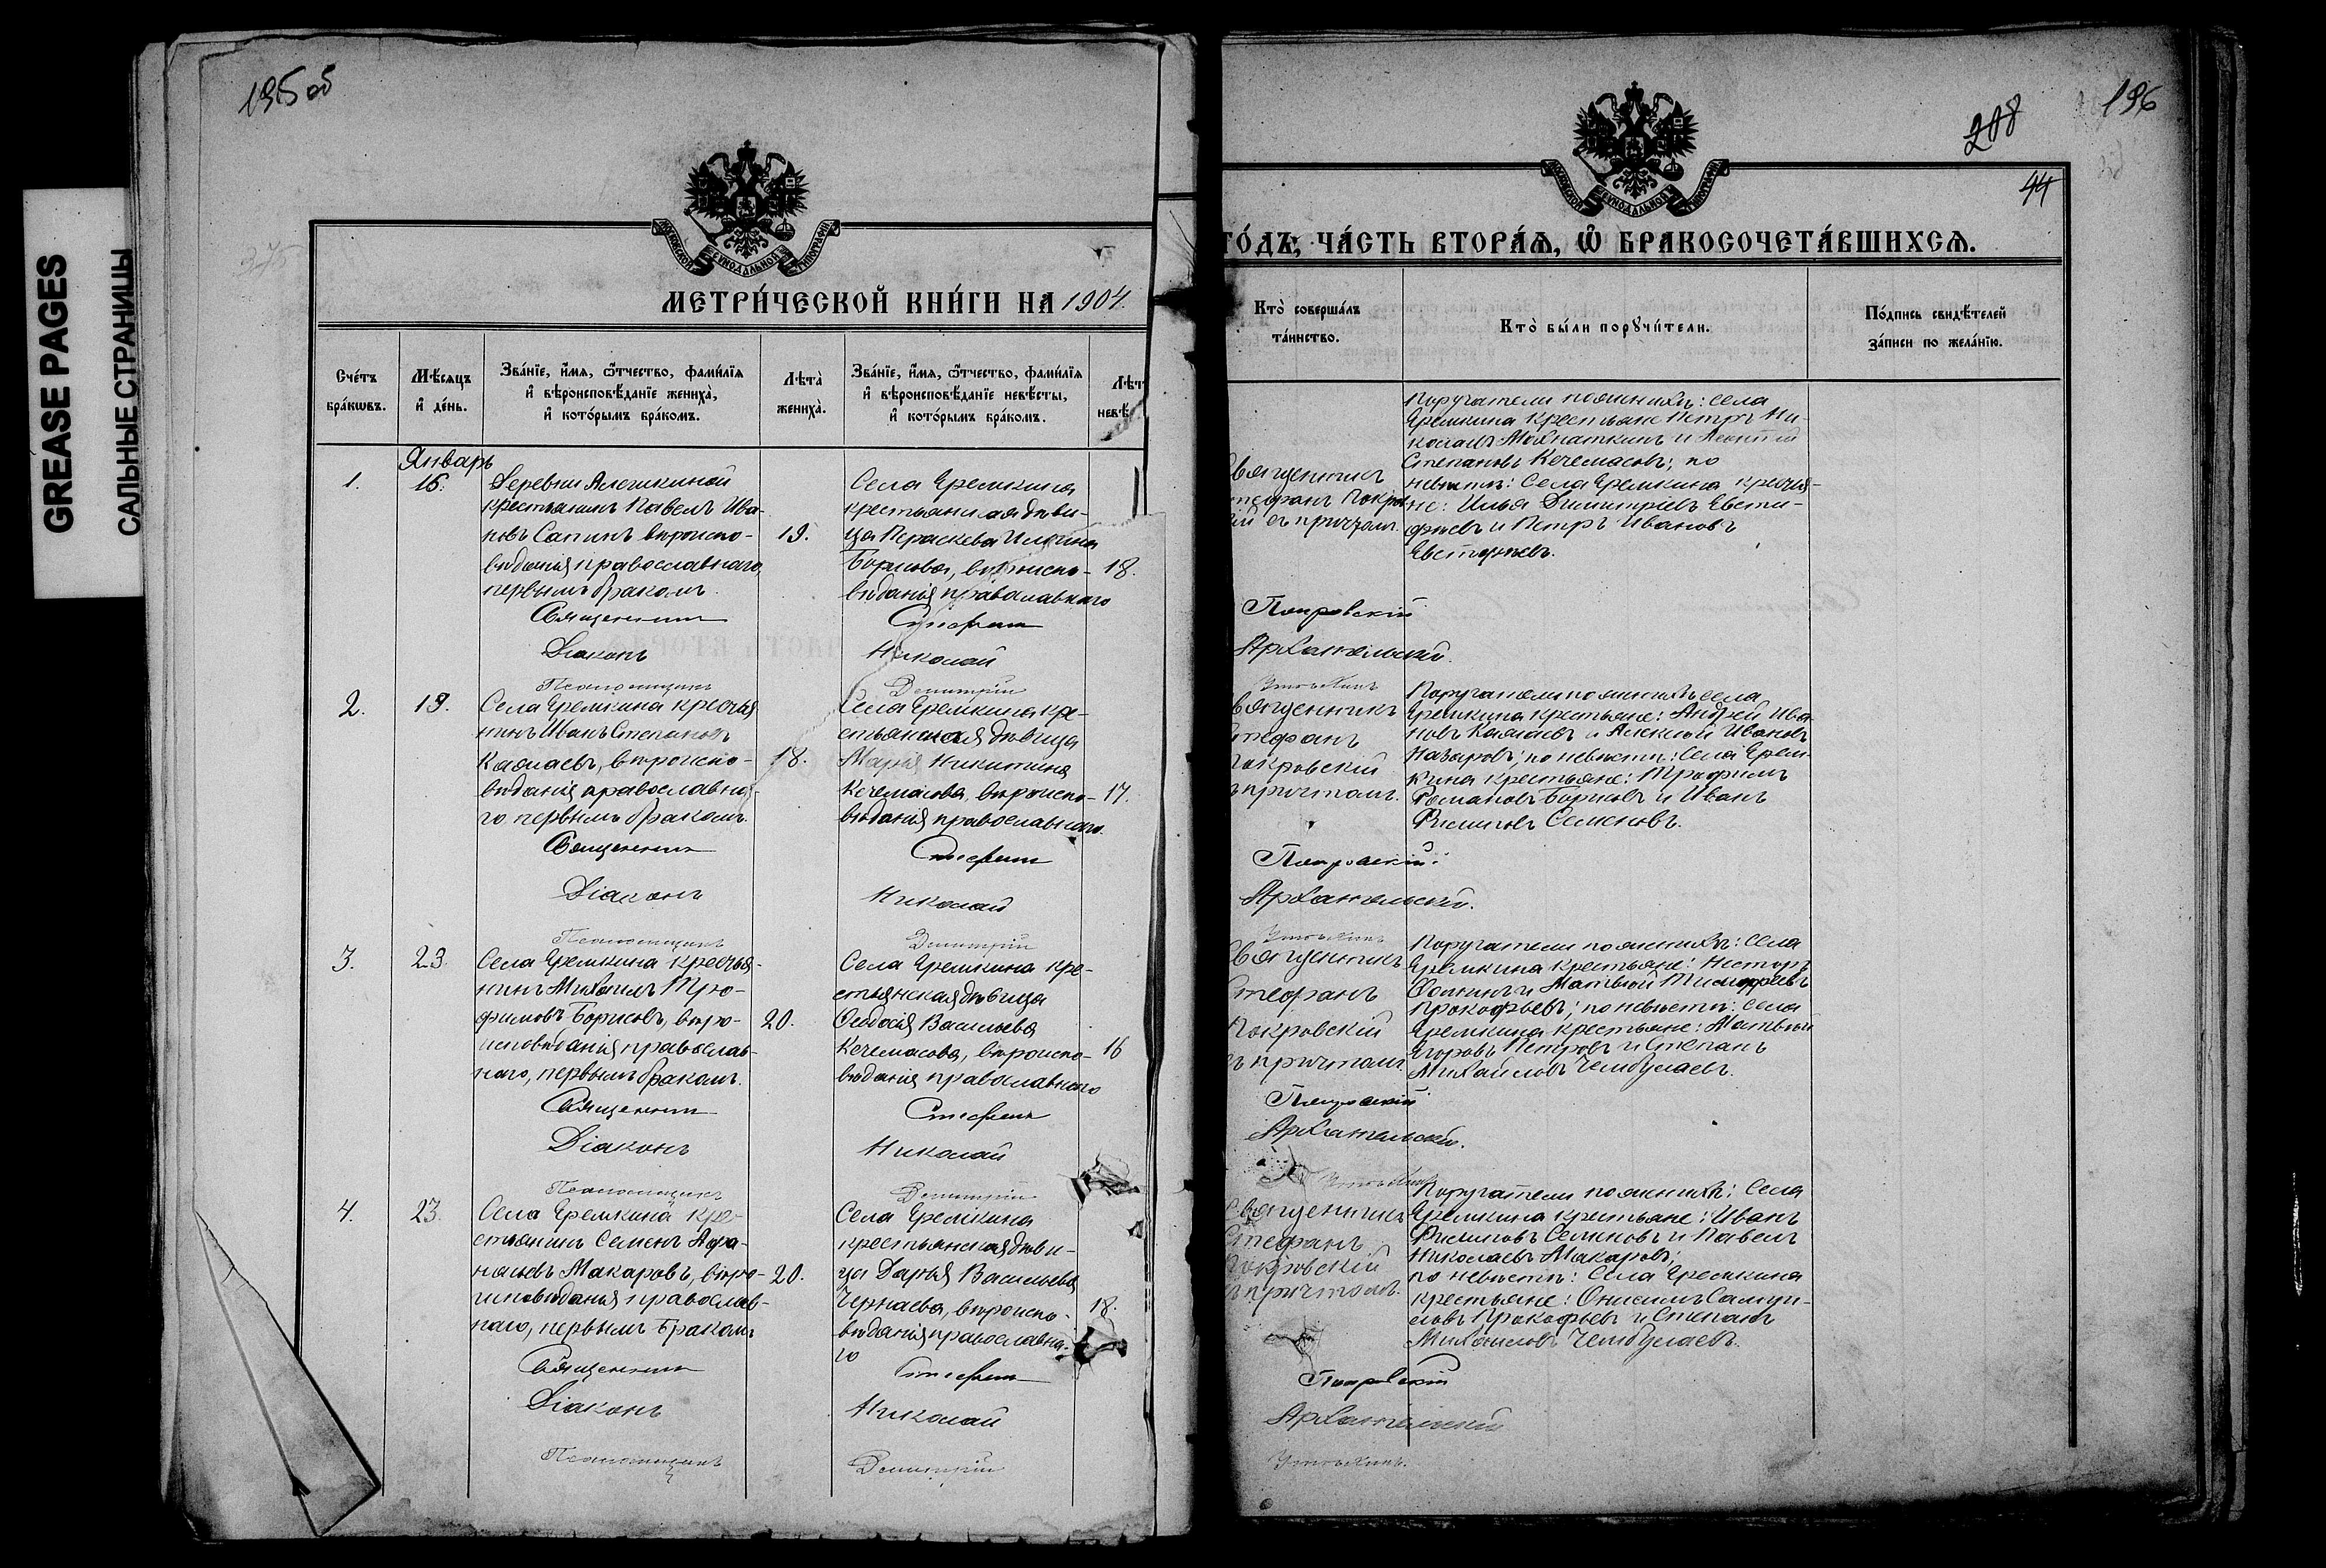 GREASE PAGES
САЛЬНЫЕ СТРАНИЦЫ
195 об
МЕТРИ́ЧЕСКОЙ КНИ́ГИ НА 1904.
Сче́тъ бра́кѡвъ.
Мѣ́сяцъ и҆ де́нь.
Зва́нїе, и҆́мѧ, ѻ҆́тчество, фами́лїѧ и҆ вѣроисповѣ́данїе жениха̀, и҆ кото́рымъ бра́комъ.
Лѣта̀ жениха̀.
Зва́нїе, и҆́мѧ, ѻ҆́тчество, фами́лїѧ и҆ вѣроисповѣ́данїе невѣ́сты, и҆ кото́рымъ бра́комъ.
Лѣт
невѣ
Январь
1.
16.
Деревни Алешкиной
крестьянинъ Павелъ Ива-
новъ Сапинъ вѣроиспо-
вѣданія православнаго,
первымъ бракомъ.
19.
Села Еремкина
крестьянская дѣви-
ца Параскева Ильина
Борисова, вѣроиспо-
вѣданія православнаго
18.
Священникъ
Стефанъ
Діаконъ
Николай
Псаломщикъ
Димитрій
2.
19.
Села Еремкина крестья
нинъ Иванъ Степановъ
Камаевъ, вѣроиспо-
вѣданія православна-
го первымъ бракомъ.
18.
Села Еремкина кре-
стьянская дѣвица
Марія Никитина
Кечемасова, вѣроиспо-
вѣданія православнаго.
17.
Священникъ
Стефанъ
Діаконъ
Николай
Псаломщикъ
Димитрій
3.
23.
Села Еремкина крестья-
нинъ Михаилъ Тро-
фимовъ Борисовъ, вѣро-
исповѣданія православ-
наго, первымъ бракомъ.
20.
Села Еремкина кре-
стьянская дѣвица
Ѳеодосія Васильева
Кечемасова, вѣроиспо-
вѣданія православнаго
16
Священникъ
Стефанъ
Діаконъ
Николай
Псаломщикъ
Димитрій
4.
23.
Села Еремкина кре-
стьянинъ Семенъ Аѳа-
насьевъ Макаровъ, вѣро-
исповѣданія православ-
наго, первымъ бракомъ
20.
Села Еремкина
крестьянская дѣви-
ца Дарья Васильева
Чернаева, вѣроиспо-
вѣданія православна-
го
18.
Священникъ
Стефанъ
Діаконъ
Николай
Псаломщикъ
Димитрій
196
208
44
ГО́ДЪ, ЧА́СТЬ ВТОРА́Ѧ, Ѽ БРАКОСОЧЕТА́ВШИХСѦ.
Кто̀ соверша́лъ та́инство.
Кто̀ бы́ли порꙋчи́тели.
По́дпись свидѣ́телей за́писи по жела́нїю.
Священникъ
Стефанъ Покров
кій съ причтомъ.
Поручатели по женихѣ: села
Еремкина крестьяне Петръ Ни-
Степановъ Кечемасовъ; по
невѣстѣ: Села Еремкина крестья-
не: Илья Димитріевъ Евсти-
фѣевъ и Петръ Ивановъ
Евстифѣевъ.
Покровскій
Архангельскій.
Священникъ
Стефанъ
Покровскій
съ причтомъ.
Поручатели по женихѣ села
Еремкина крестьяне: Андрей Ива
новъ Камаевъ и Алексѣй Ивановъ
Назаровъ; по невѣстѣ: Села Ерем-
кина крестьяне: Трофимъ
Романовъ Борисовъ и Иванъ
Филиповъ Семеновъ.
Покровскій.
Архангельскій.
Священникъ
Стефанъ
Покровскій
съ причтомъ
Поручатели по женихѣ: Села
Еремкина крестьяне: Несторъ
Ѳоминъ и Матвѣй Тимофѣевъ
Прокофьевъ; по невѣстѣ: Села
Еремкина крестьяне: Матвѣй
Егоровъ Петровъ и Степанъ
Михайловъ Чембулаевъ.
Покровскій
Архангельскій.
Священникъ
Стефанъ
Покровскій
съ причтомъ.
Поручатели по женихѣ: Села
Еремкина крестьяне: Иванъ
Филиповъ Семеновъ и Павелъ
Николаевъ Макаровъ;
по невѣстѣ: Села Еремкина
крестьяне: Онисимъ Самуи-
ловъ Прокофьевъ и Степанъ
Михайловъ Чембулаевъ.
Покровскій
Архангельскій